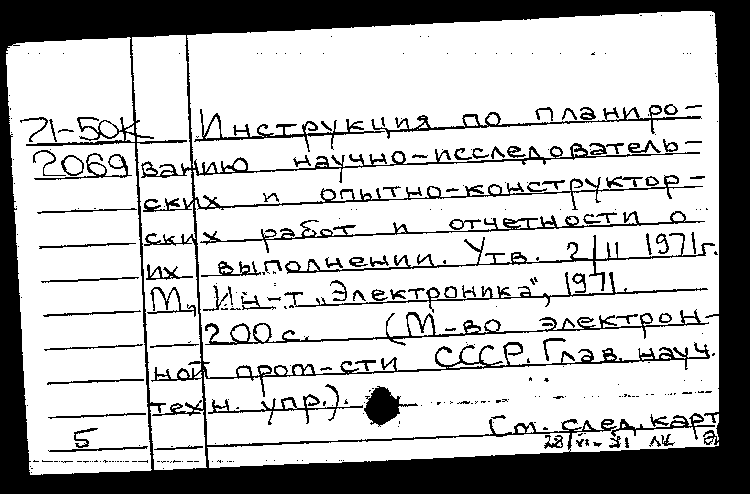 71-50К Инструкция по планиро=
2069 ванию научно-исследователь=
ских и опытно-конструктор-
ских работ и отчетности о
их выполнении. Утв. 2/II 1971г.
М., Ин-т „Электроника", 1971.
200 с. (М-во электрон-
ной пром-сти СССР. Глав. науч.
техн. упр.).
5 См. след. карт
28/XI-